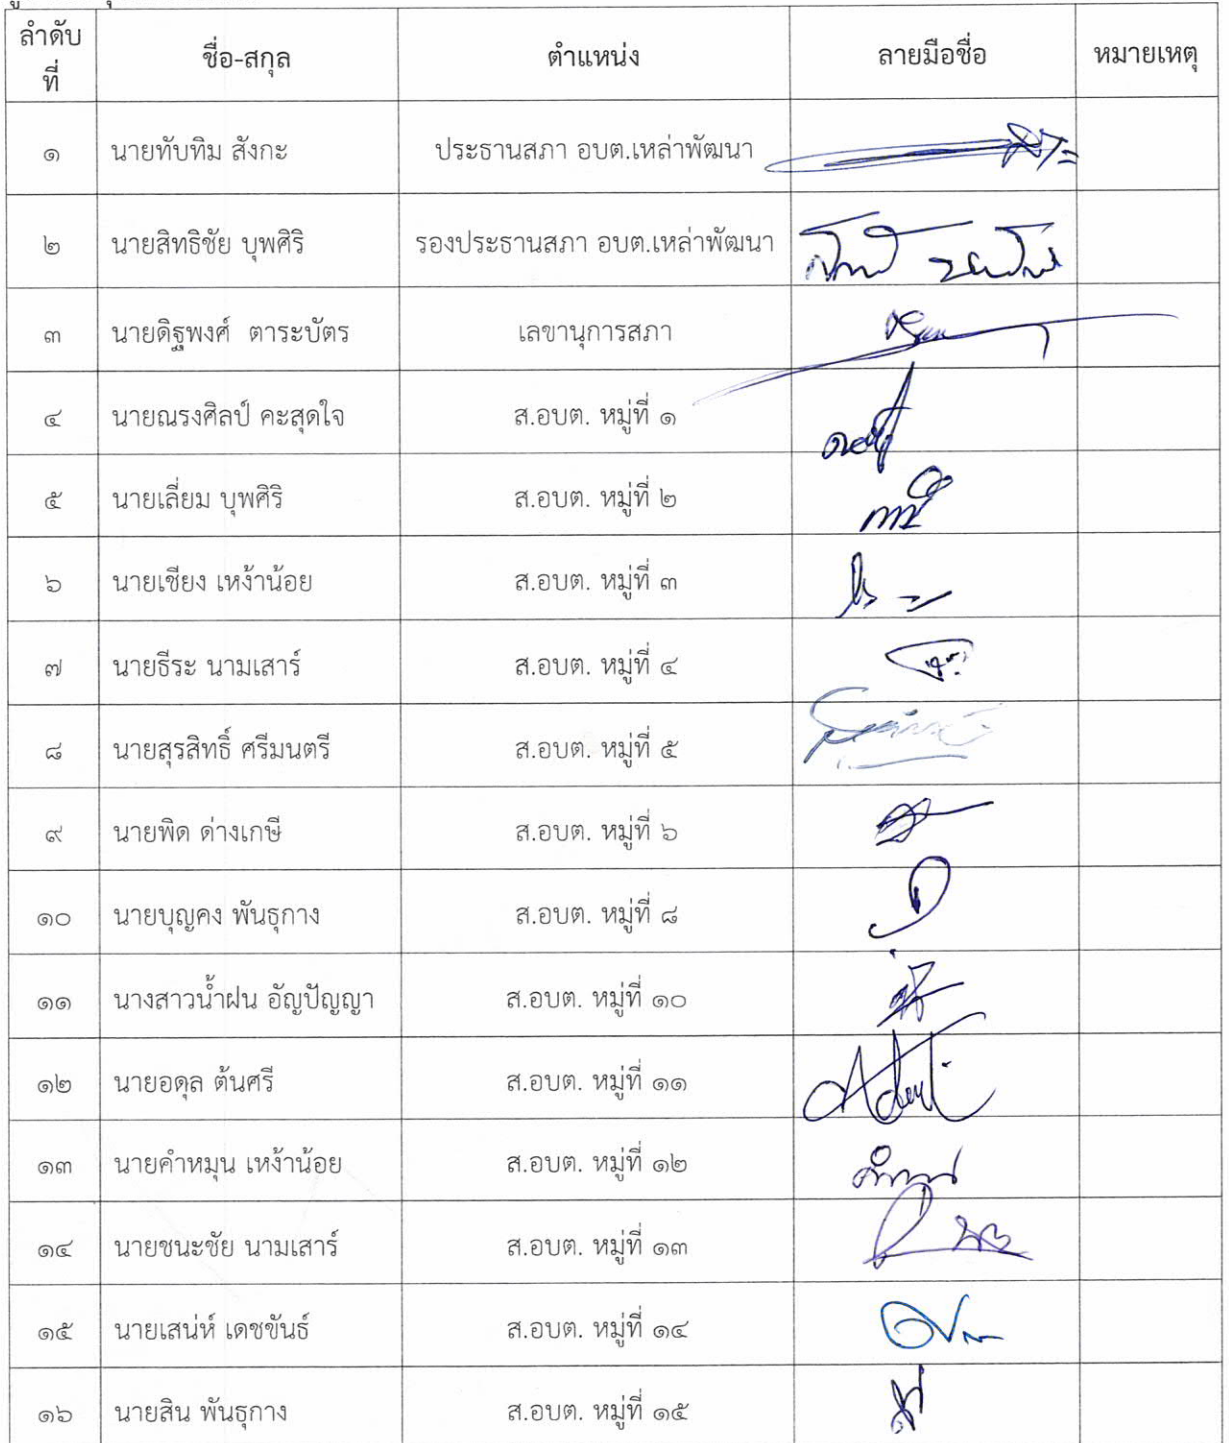 ลำดับ
ที่
ชื่อ-สกุล
ตำแหน่ง
ลายมือชื่อ
หมายเหตุ
๑ นายทับทิม สังกะ ประธานสภา อบต.เหล่าพัฒนา
๒ นายสิทธิชัย บุพศิริ รองประธานสภา อบต.เหล่าพัฒนา
๓ นายดิฐพงศ์ ตาระบัตร เลขานุการสภา
๔ นายณรงศิลป์ คะสุดใจ ส.อบต. หมู่ที่ ๑
๕ นายเลี่ยม บุพศิริ ส.อบต. หมู่ที่ ๒
๖ นายเชียง เหง้าน้อย ส.อบต. หมู่ที่ ๓
๗ นายธีระ นามเสาร์ ส.อบต. หมู่ที่ ๔
๘ นายสุรสิทธิ์ ศรีมนตรี ส.อบต. หมู่ที่ ๕
๙ นายพิด ด่างเกษี ส.อบต. หมู่ที่ ๖
๑๐ นายบุญคง พันธุกาง ส.อบต. หมู่ที่ ๘
๑๑ นางสาวน้ำฝน อัญปัญญา ส.อบต. หมู่ที่ ๑๐
๑๒ นายอดุล ต้นศรี ส.อบต. หมู่ที่ ๑๑
๑๓ นายคำหมุน เหง้าน้อย ส.อบต. หมู่ที่ ๑๒
๑๔ นายชนะชัย นามเสาร์ ส.อบต. หมู่ที่ ๑๓
๑๕ นายเสน่ห์ เดชขันธ์ ส.อบต. หมู่ที่ ๑๔
๑๖ นายสิน พันธุกาง ส.อบต. หมู่ที่ ๑๕